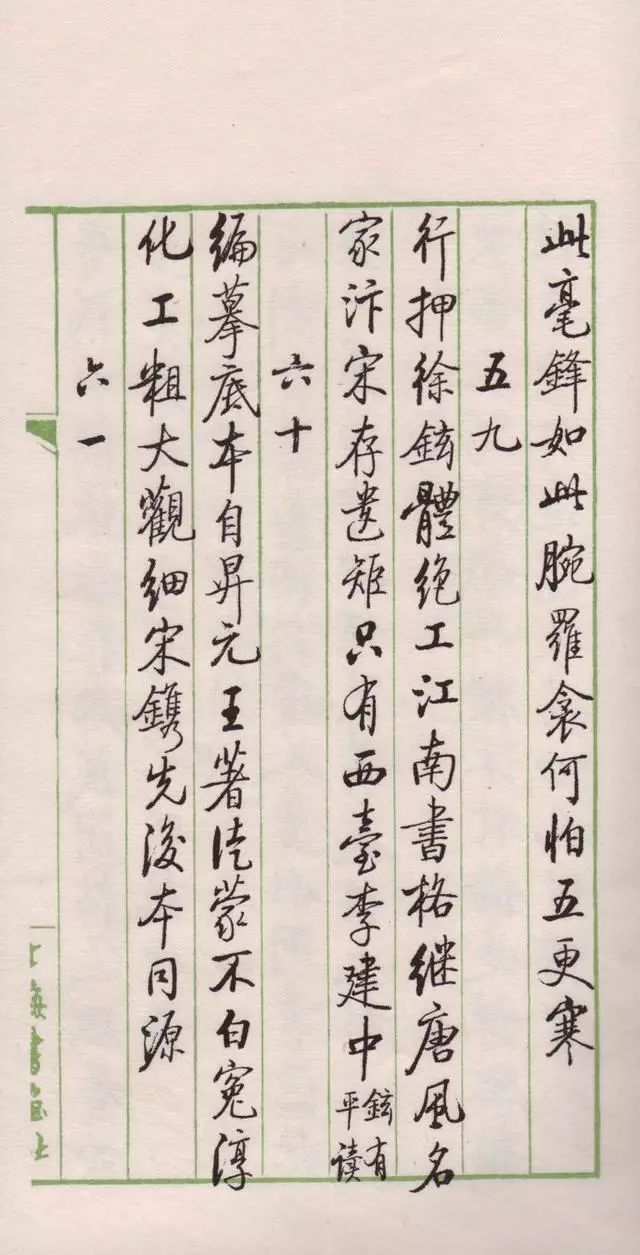 此毫鋒如此腕羅衾何怕五更寒
五九
行押徐鉉體绝工江南書格继唐風名
家汴宋存遺矩只有西臺李建中鉉有平读
六十
编摹底本自昇元王著徒蒙不白冤淳
化工粗大觀细宋鐫先後本同源
六一
上海書画社